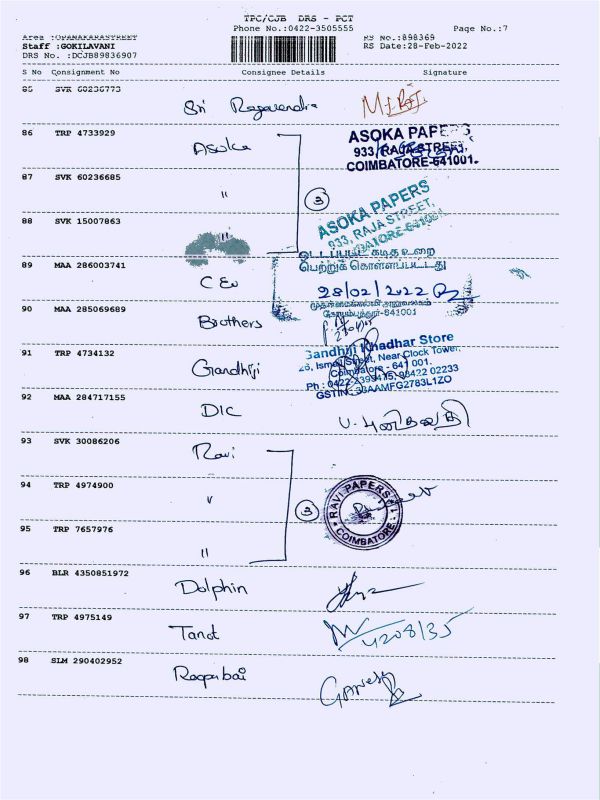 TPC/CJB DRS - PCT
Phone No.:0422-3505555
Page No.:7
Area :OPANAKARASTREET
RS No.:898369
Staff :GOKILAVANI
RS Date:28-Feb-2022
DRS No. :DCJB89836907
S No Consignment No Consignee Details Signature
85 SVK 60236773
Sri Ragavendra
86 TRP 4733929
Asoka
ASOKA PAPERS
933, RAJA STREET,
COIMBATORE-641001.
87 SVK 60236685
"
3
ASOKA PAPERS
933, RAJA STREET,
COIMBATORE-641001
88 SVK 15007863
கடித உறை
பெற்றுக் கொள்ளப்பட்டது
89 MAA 286003741
CEO
28/02/2022
முதன்மைக்கல்வி அலுவலகம்
கோயம்புத்தூர்-641001
90 MAA 285069689
Brothers
91 TRP 4734132
Gandhiji
Gandhiji Khadhar Store
Near Clock Tower,
Coimbatore - 641 001.
92 MAA 284717155
DIC
93 SVK 30086206
Ravi
94 TRP 4974900
"
3
RAVI PAPERS
COIMBATORE - 1
95 TRP 7657976
"
96 BLR 4350851972
Dolphin
97 TRP 4975149
Tanot
98 SLM 290402952
Ganesh